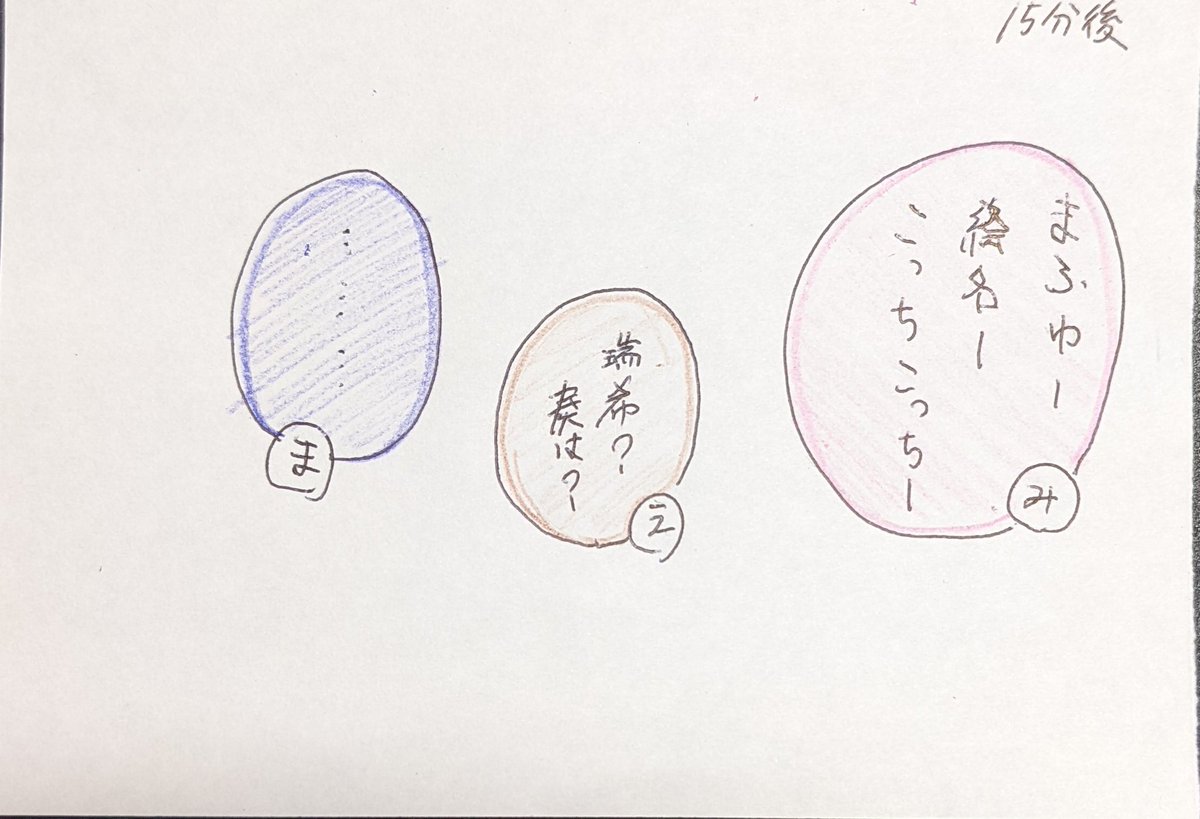 15分後
まふゆー
絵名ー
こっちこっちー
み
瑞希?
奏は?
え
………
ま